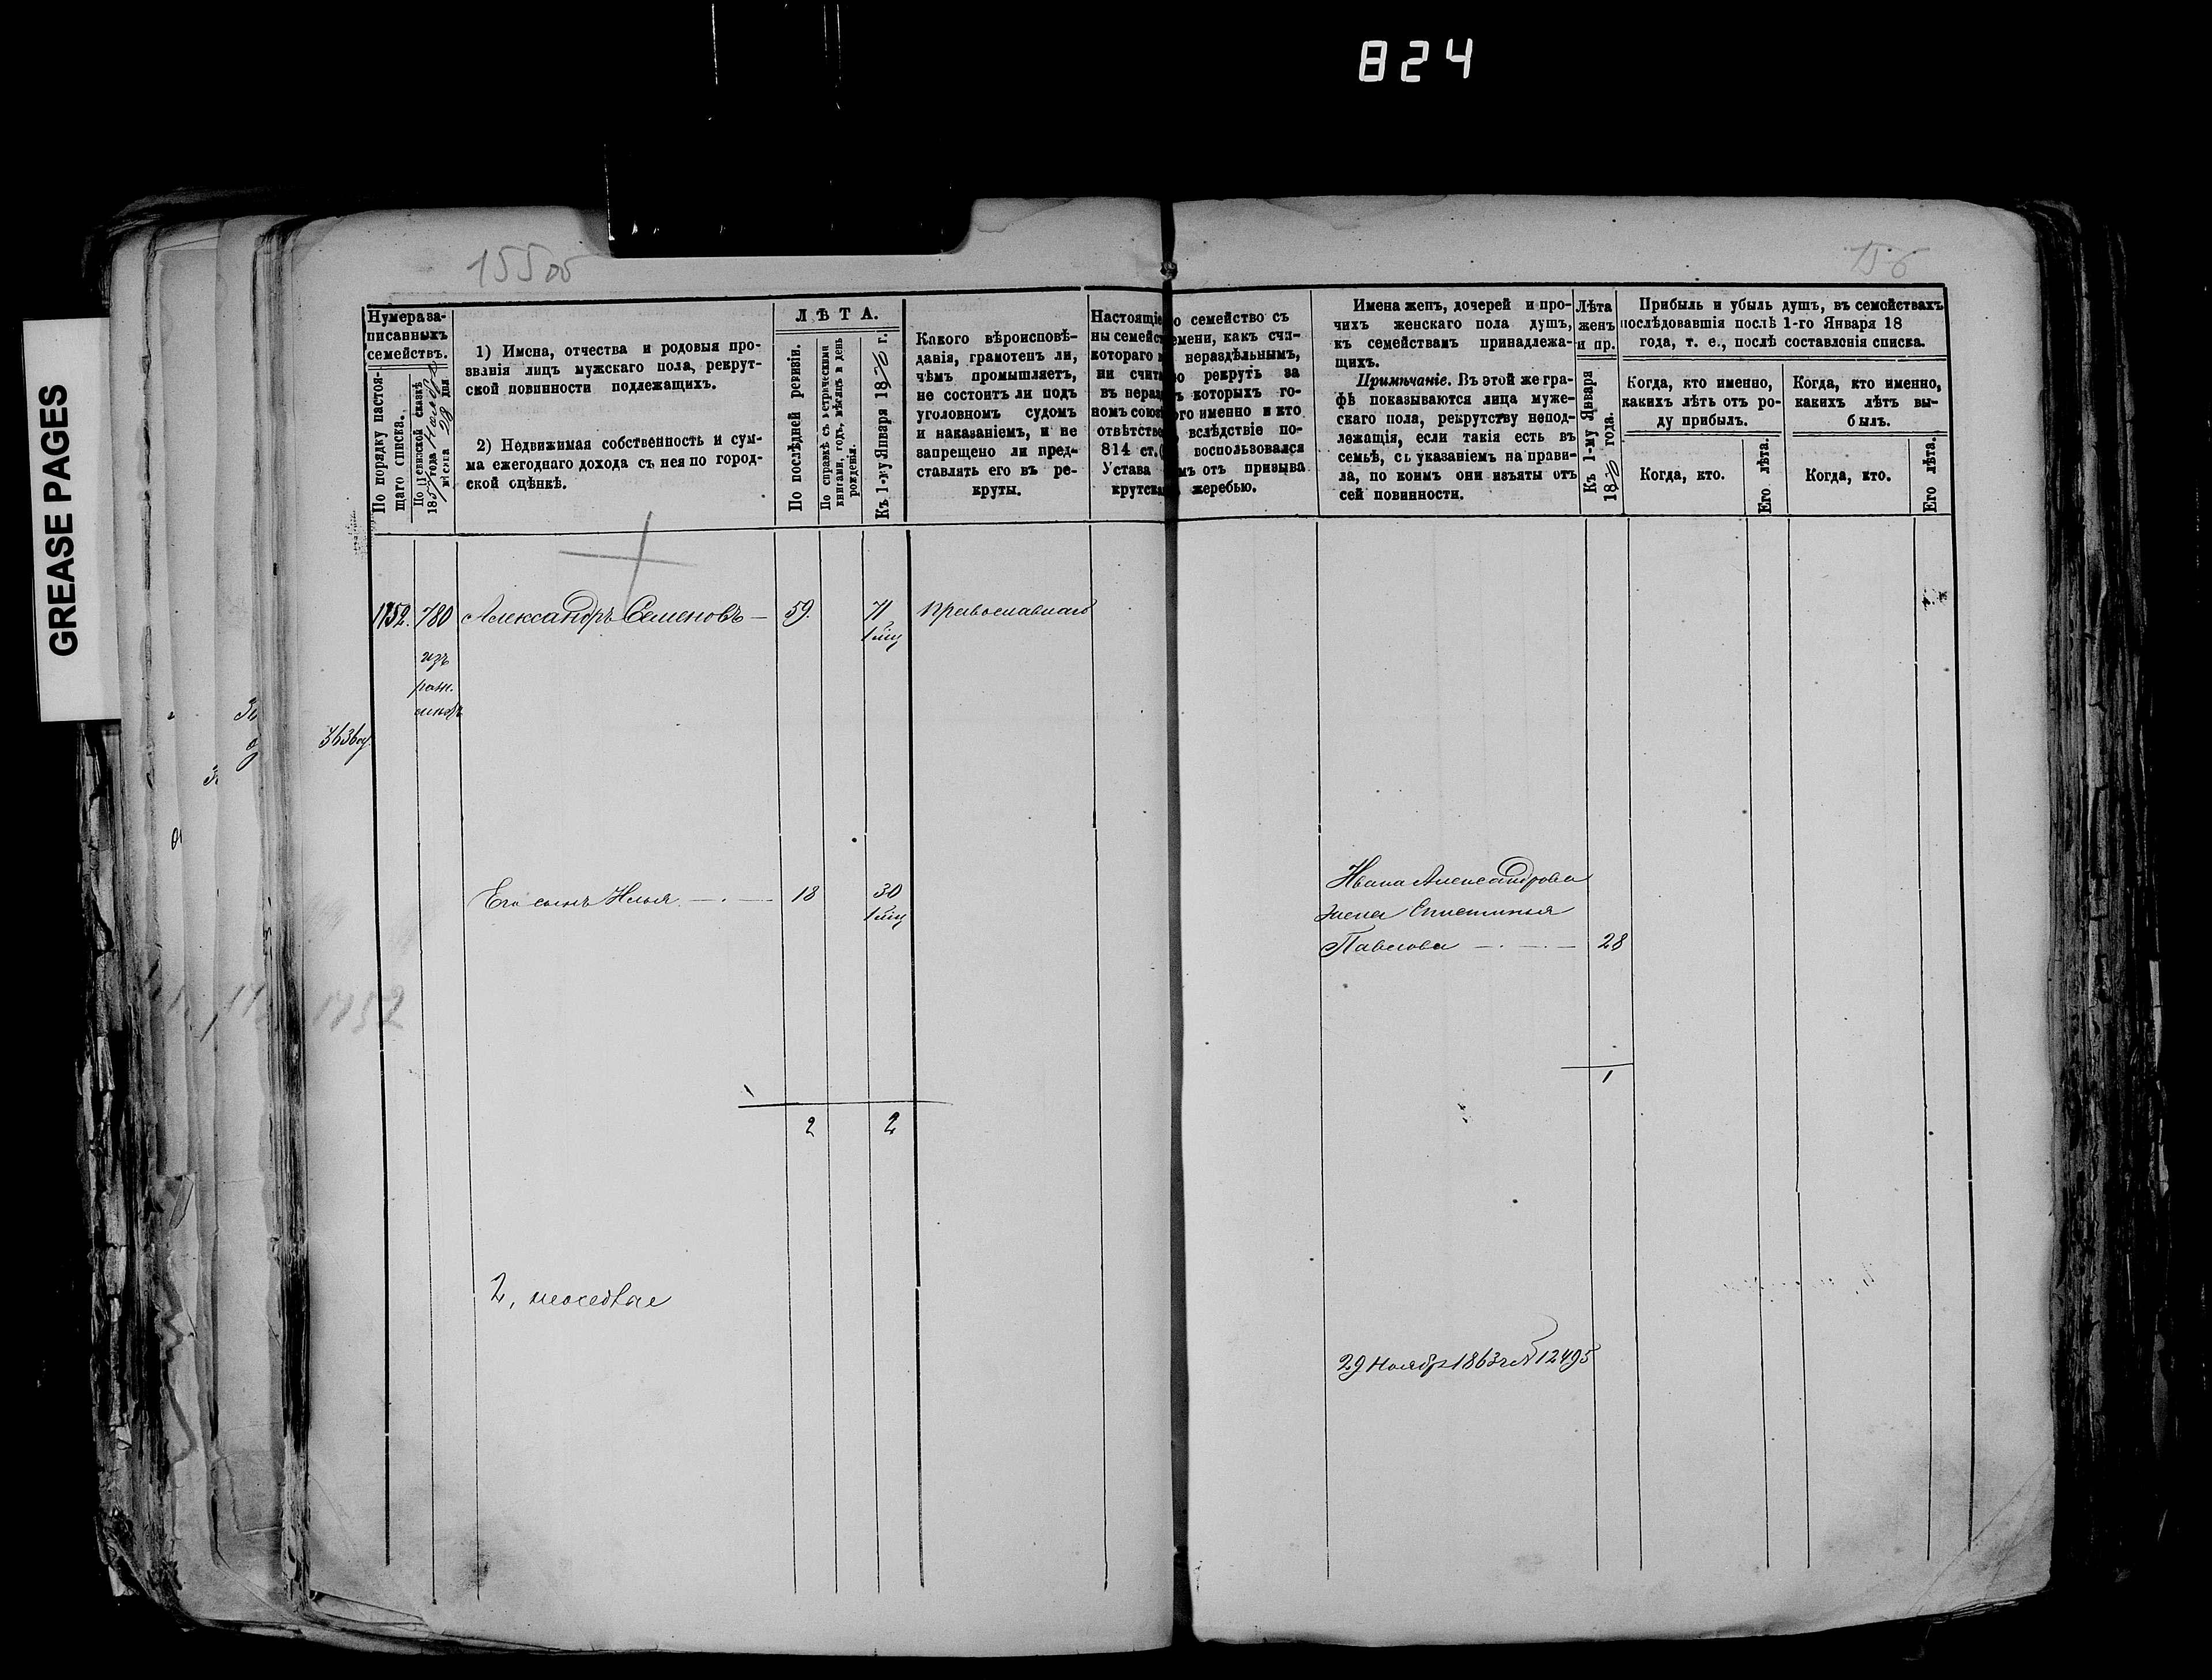 824
GREASE PAGES
155 об
156
Нумера за-
писанныхъ
семействъ.
По порядку настоя-
щаго списка.
По ревизской сказкѣ
1857 года Ноября
мѣсяца 28 дня.
1) Имена, отчества и родовыя про-
званія лицъ мужскаго пола, рекрут-
ской повинности подлежащихъ.
2) Недвижимая собственность и сум-
ма ежегоднаго дохода съ нея по город-
ской оцѣнкѣ.
ЛѢТА.
По послѣдней ревизіи.
По справкѣ съ метрическими
книгами, годъ, мѣсяцъ и день
рожденія.
Къ 1-му Января 1870 г.
Какого вѣроисповѣ-
данія, грамотенъ ли,
чѣмъ промышляетъ,
не состоитъ ли подъ
уголовномъ судомъ
и наказаніемъ, и не
запрещено ли пред-
ставлять его въ ре-
круты.
Настоящіе
ны семейст
котораго
ни счита
въ нераз
номъ союз
отвѣтство
814 ст.
Устава
крутска
о семейство съ
емени, какъ счи-
нераздѣльнымъ,
о рекрутъ за
ъ которыхъ го-
ого именно и кто
вслѣдствіе по-
воспользовался
мъ отъ призыва
жеребью.
Имена женъ, дочерей и про-
чихъ женскаго пола душъ,
къ семействамъ принадлежа-
щихъ.
Примѣчаніе. Въ этой же гра-
фѣ показываются лица муже-
скаго пола, рекрутству непод-
лежащія, если такія есть въ
семьѣ, съ указаніемъ на прави-
ла, по коимъ они изъяты отъ
сей повинности.
Лѣта
женъ
и пр.
Къ 1-му Января
1870 года.
Прибыль и убыль душъ, въ семействахъ
послѣдовавшія послѣ 1-го Января 18
года, т. е., послѣ составленія списка.
Когда, кто именно,
какихъ лѣтъ отъ ро-
ду прибылъ.
Когда, кто именно,
какихъ лѣтъ вы-
былъ.
Когда, кто.
Его лѣта.
Когда, кто.
Его лѣта.
1752. 780 Александръ Семеновъ — 59. 71 Православнаго
изъ
Его сынъ Илья — 18 30
Ивана Александрова
жена Епистинья
Павлова — 28
1752
1
2 2
2,
29 Ноября 1863 г № 12495